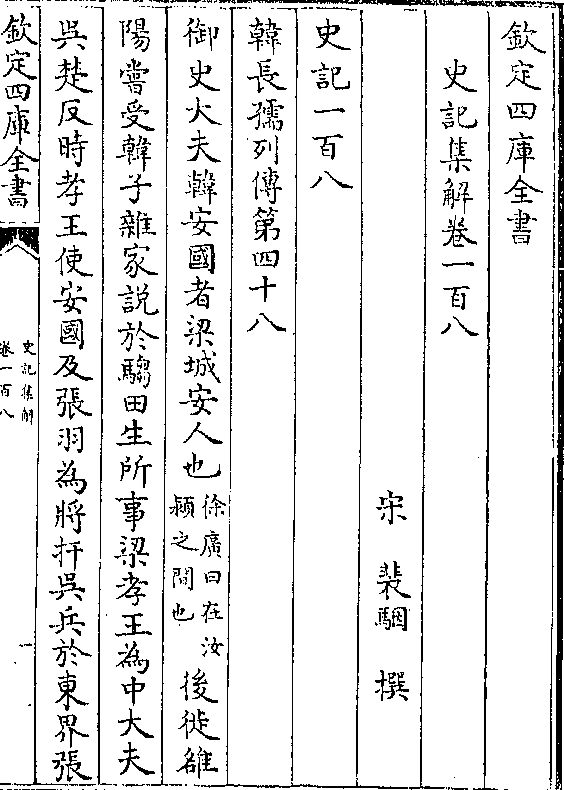 欽定四庫全書
史記集解卷一百八
宋 裴駰 撰
史記一百八
韓長孺列傳第四十八
御史大夫韓安國者梁城安人也徐廣曰在汝潁之間也後徙睢
陽嘗受韓子雜家說於騶田生所事梁孝王為中大夫
吳楚反時孝王使安國及張羽為將扞吳兵於東界張
欽定四庫全書
史記集解
卷一百八
一